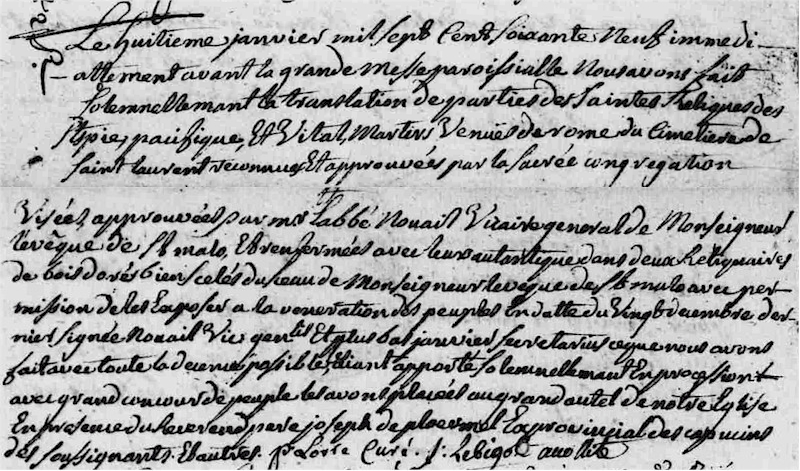 Le huitieme janvier mil sept Cent Soixante Neuf immedi-
-attement avant la grande Messe paroissialle Nous avons fait
Solemnellemant la translation de parties des Saintes Reliques des
Sts pie, pacifique, Et Vital, Martirs Venües de rome du Cimetiere de
Saint laurent reconnues Et approuvées par la Sacrée congregation
Visées, approuvées par mr L'abbé Nouail Vicaire general de Monseigneur
l'evêque de St malo, Et renfermées avec leurs autantique dans deux Reliquaires
de bois dorés bien scelés du sceau de Monseigneur leveque de St malo avec per
mission de les Exposer a la veneration des peuples En datte du Vingt decembre der
nier signée Nouail Vic genlis Et plus bas janvier secretarius ce que nous avons
fait avec toute la decence possible, apporté solemnellemant En procession
avec grand concour de peuple les avons placées au grand autel de notre Eglise
En presence du Reverend pere joseph de ploermel Exprovincial des capucins
des soussignants. Et autres. Curé. j. Lebigot